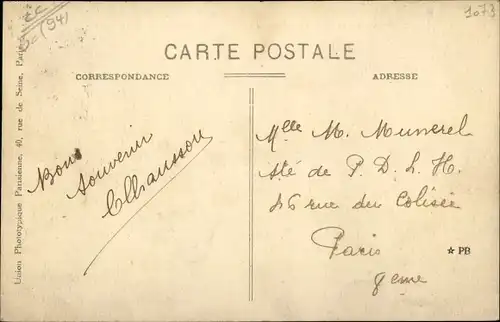 1073
(94)
CARTE POSTALE
CORRESPONDANCE
ADRESSE
Union Phototypique Parisienne, 40, rue de Seine, Paris
Bons
souvenir
Mlle M.
Sté de P. D. L. H.
46 rue du Colisée
Paris
8eme
★ PB